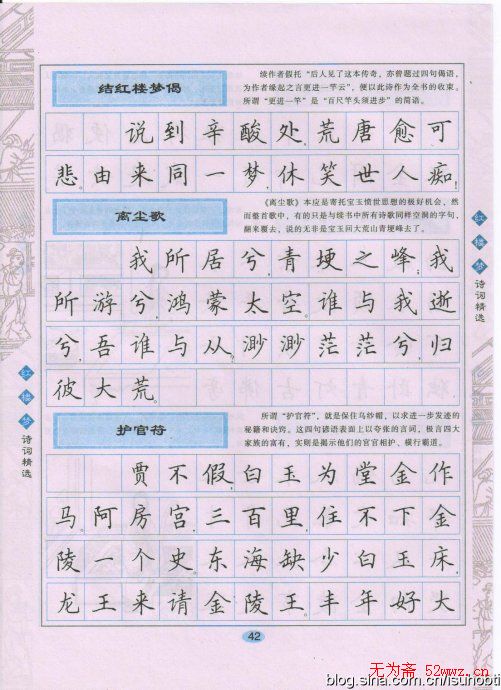 结红楼梦偈
续作者假托“后人见了这本传奇，亦曾题过四句偈语，
为作者缘起之言更进一竿云”，便以此诗作为全书的收束。
所谓“更进一竿”是“百尺竿头须进步”的简语。
说到辛酸处，荒唐愈可
悲。由来同一梦，休笑世人痴！
离尘歌
《离尘歌》本应是寄托宝玉愤世思想的极好机会，然
而整首歌中，有的只是与续书中所有诗歌同样空洞的字句，
翻来覆去，说的无非是宝玉回大荒山青埂峰去了。
我所居兮，青埂之峰；我
所游兮，鸿蒙太空。谁与我逝
兮，吾谁与从。渺渺茫茫兮，归
彼大荒。
护官符
所谓“护官符”，就是保住乌纱帽，以求进一步发迹的
秘籍和诀窍。这四句谚语表面上以夸张的言词，极言四大
家族的富有，实则是揭示他们的官官相护、横行霸道。
贾不假，白玉为堂金作
马。阿房宫，三百里，住不下金
陵一个史。东海缺少白玉床，
龙王来请金陵王。丰年好大
红楼梦
诗词精选
红楼梦
诗词精选
42
无为斋 52wwz.cn
blog.sina.com.cn/lsuhobti